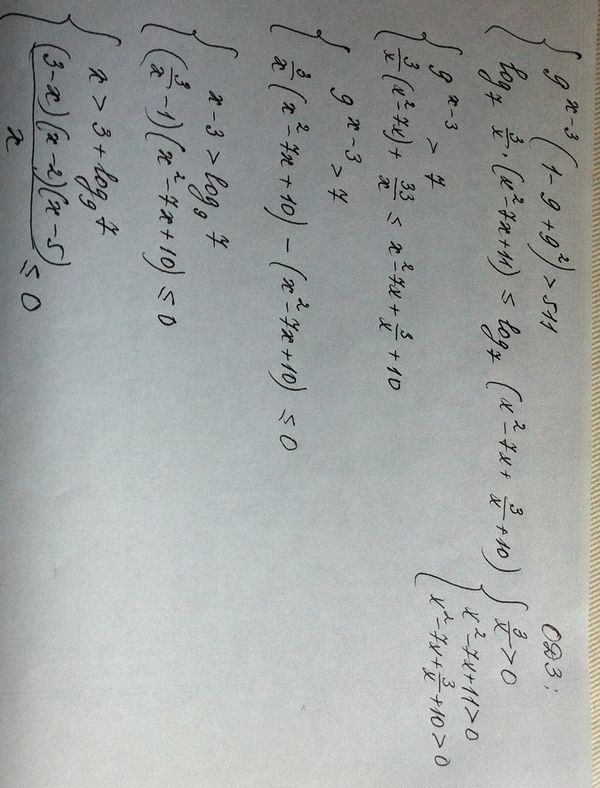 { 9^(x-3) (1-9+9²) > 511
{ log₇ 3/x · (x²-7x+11) ≤ log₇ (x²-7x+3/x+10)
ОДЗ:
{ 3/x > 0
{ x²-7x+11 > 0
{ x²-7x+3/x+10 > 0
{ 9^(x-3) > 7
{ 3/x (x²-7x) + 33/x ≤ x²-7x+3/x+10
{ 9^(x-3) > 7
{ 3/x (x²-7x+10) - (x²-7x+10) ≤ 0
{ x-3 > log₉ 7
{ (3/x -1)(x²-7x+10) ≤ 0
{ x > 3 + log₉ 7
{ (3-x)(x-2)(x-5)/x ≤ 0